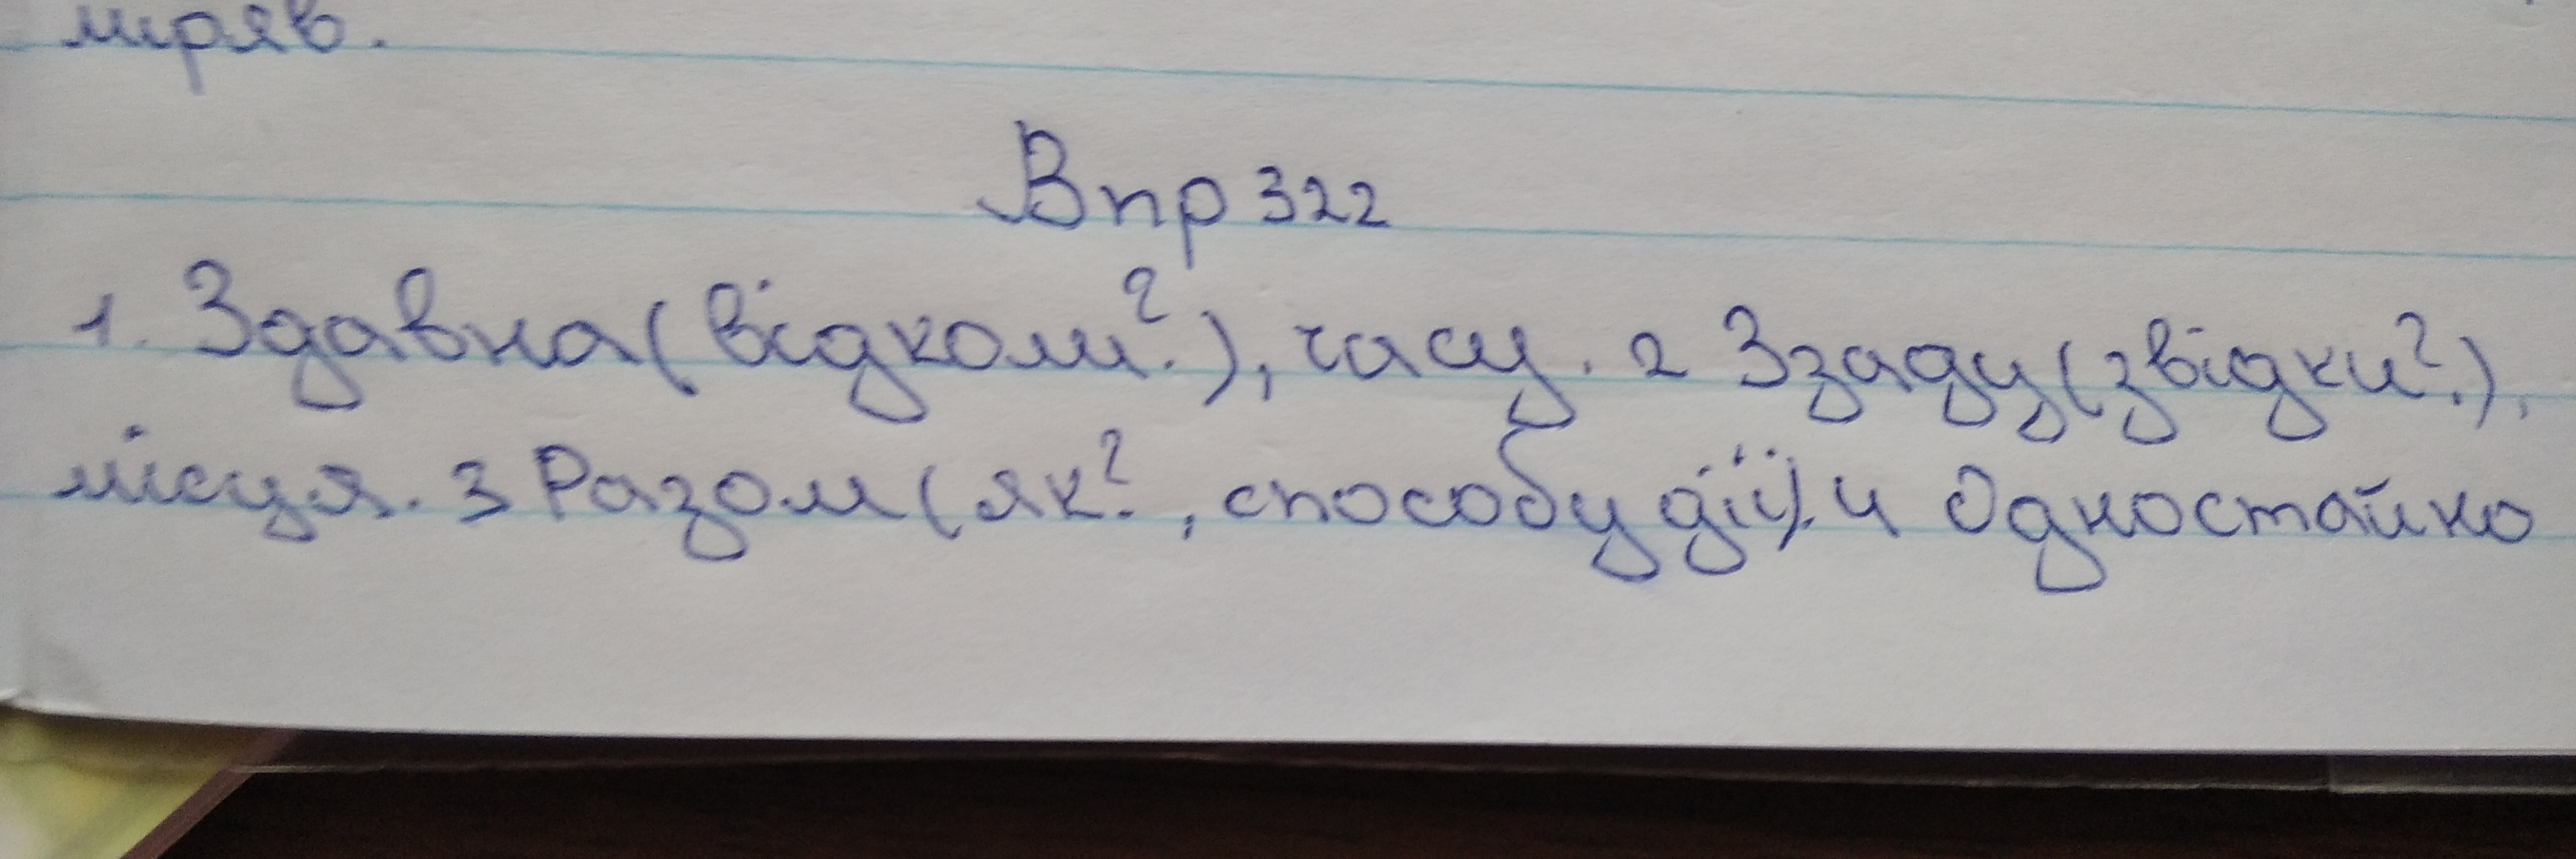 міряв.
Впр 322
1. Здавна (відколи?), часу. 2 Ззаду (звідки?),
місця. 3 Разом (як?, способу дії). 4 Одностайно